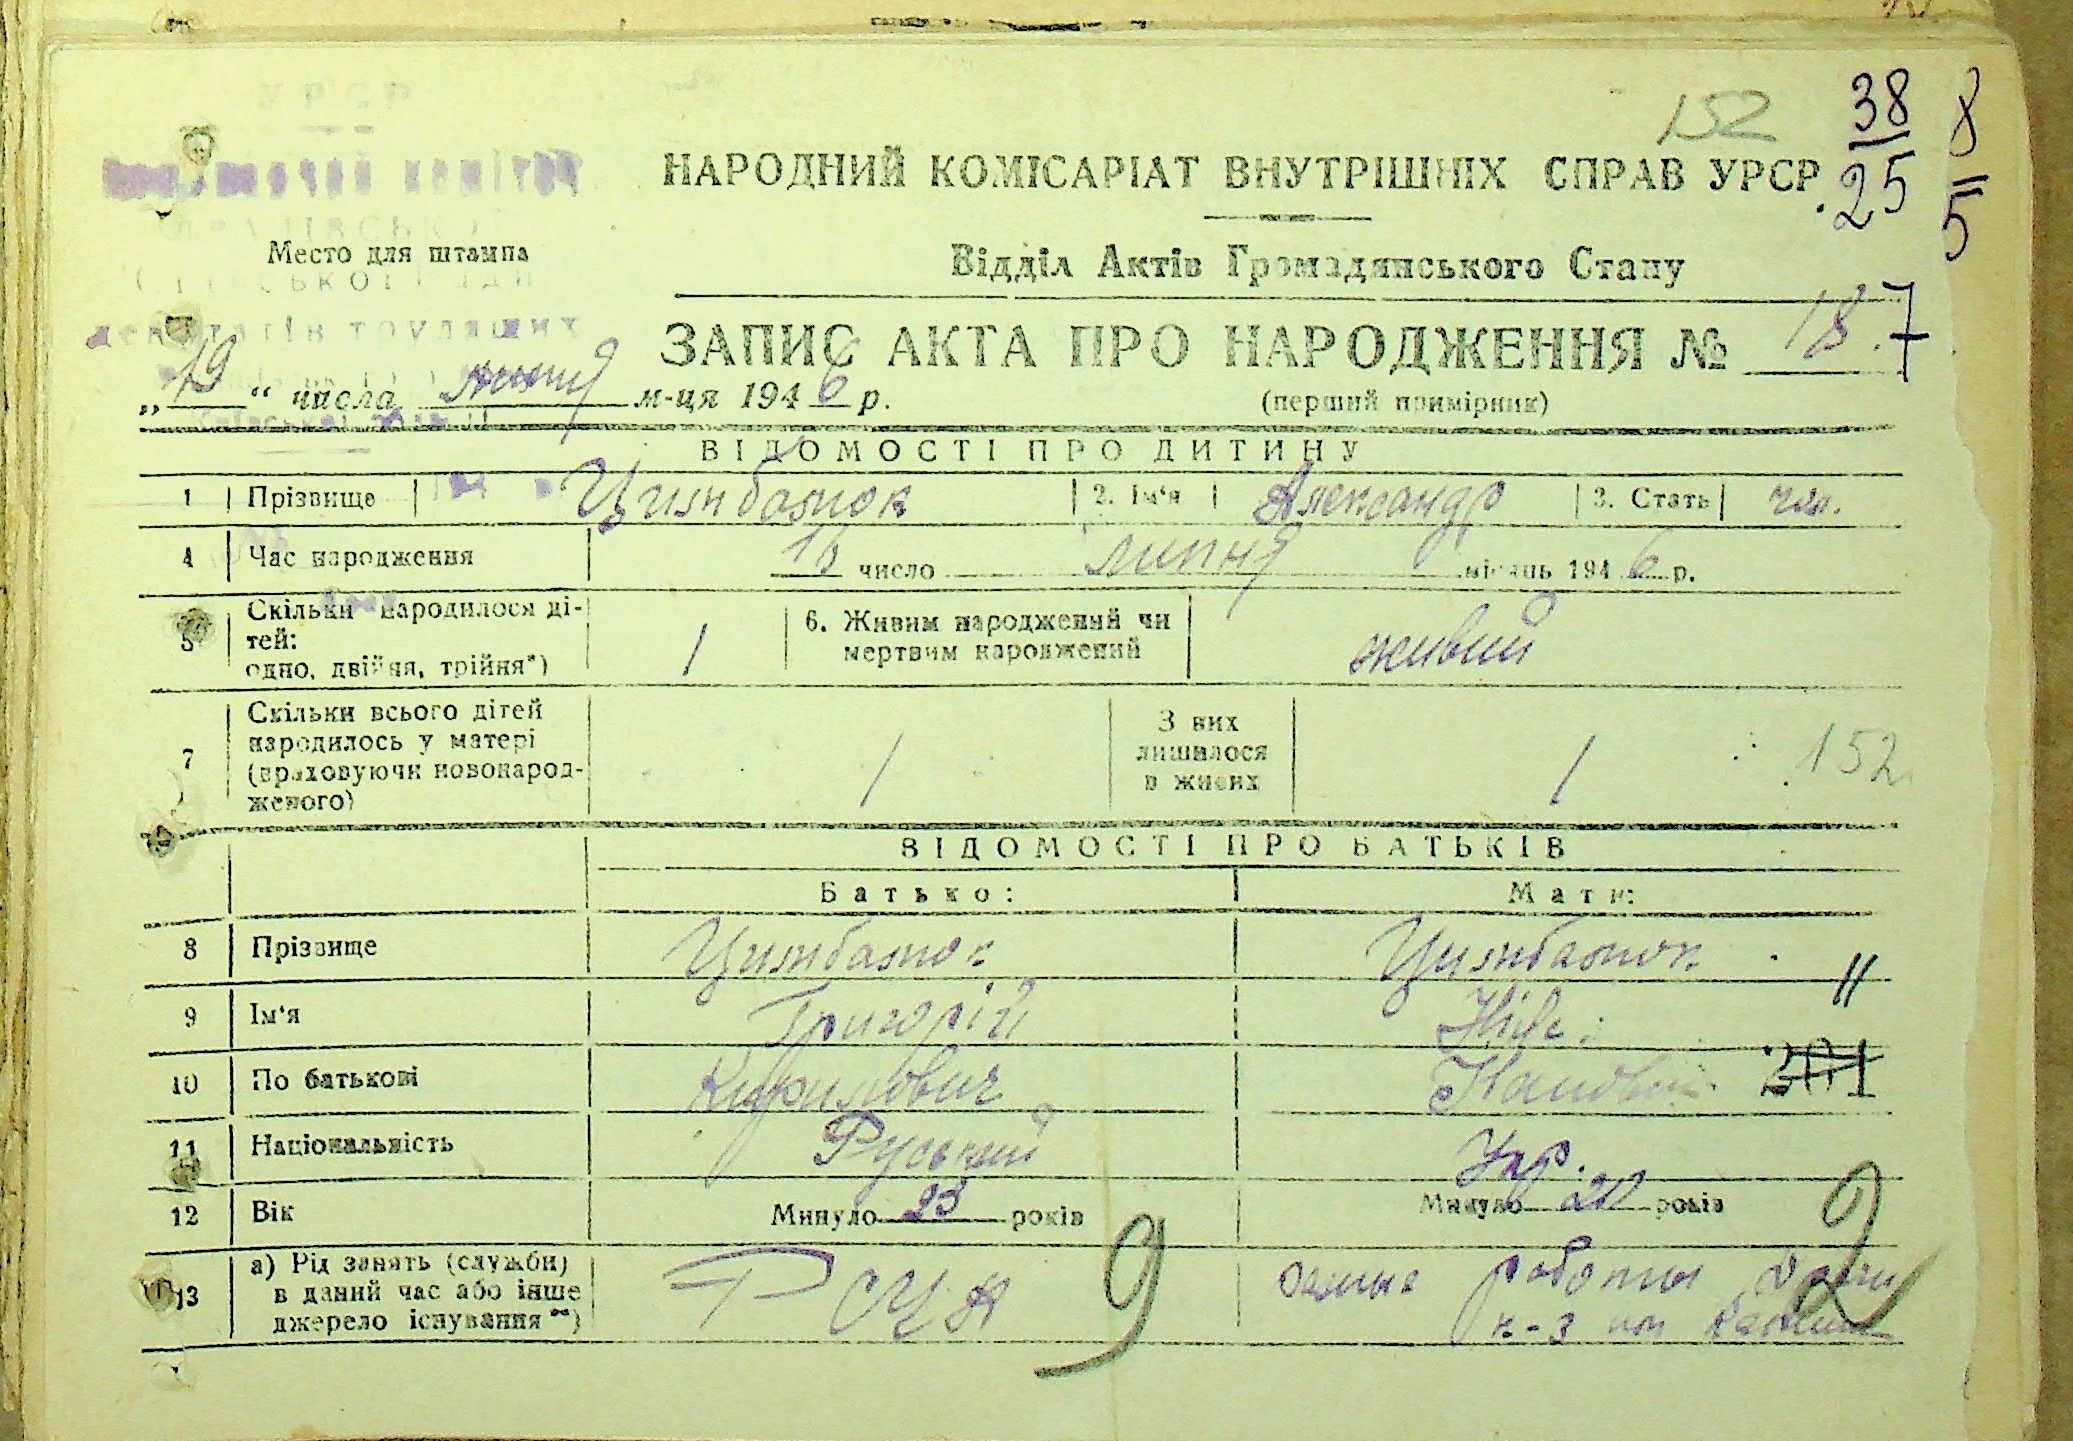 УРСР
152 38 8
25 5
НАРОДНИЙ КОМІСАРІАТ ВНУТРІШНІХ СПРАВ УРСР
Место для штампа
Відділ Актів Громадянського Стану
депутатів трудящих
ЗАПИС АКТА ПРО НАРОДЖЕННЯ № 18.7
„19“ числа липня м-ця 1946 р.
(перший примірник)
ВІДОМОСТІ ПРО ДИТИНУ
1 Прізвище Цимбалюк 2. Ім‘я Александр 3. Стать чол.
4 Час народження 16 число липня місяць 1946 р.
5 Скільки народилося ді-
тей:
одно, двійня, трійня*) 1 6. Живим народжений чи
мертвим народжений живий
7 Скільки всього дітей
народилось у матері
(враховуючи новонарод-
женого) 1 З них
лишилося
в живих 1 152
ВІДОМОСТІ ПРО БАТЬКІВ
Батько: Мати:
8 Прізвище Цимбалюк Цимбалюк "
9 Ім‘я Григорій
10 По батькові Кирилович 201
11 Національність Руський Укр.
12 Вік Минуло 23 років Минуло 20 років
13 а) Рід занять (служби)
в даний час або інше
джерело існування **) 9 роботы 2
к-з